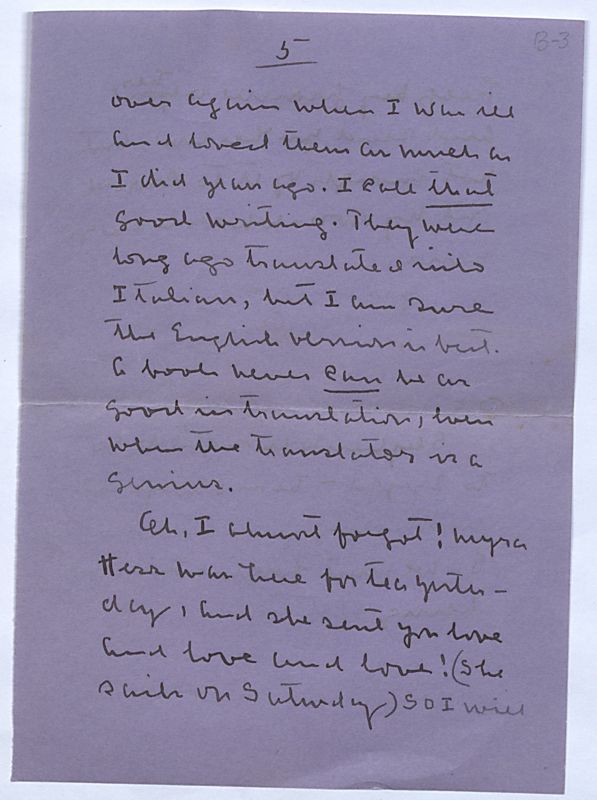 5
B-3
over again when I was ill
and loved them as much as
I did years ago. I call that
good writing. They were
long ago translated into
Italian, but I am sure
the English version is best.
A book never can be as
good in translation, even
when the translator is a
genius.
Oh, I almost forgot! Myra
Hess was here for tea yester-
day, and she sent you love
and love and love! (She
sails on Saturday) So I will